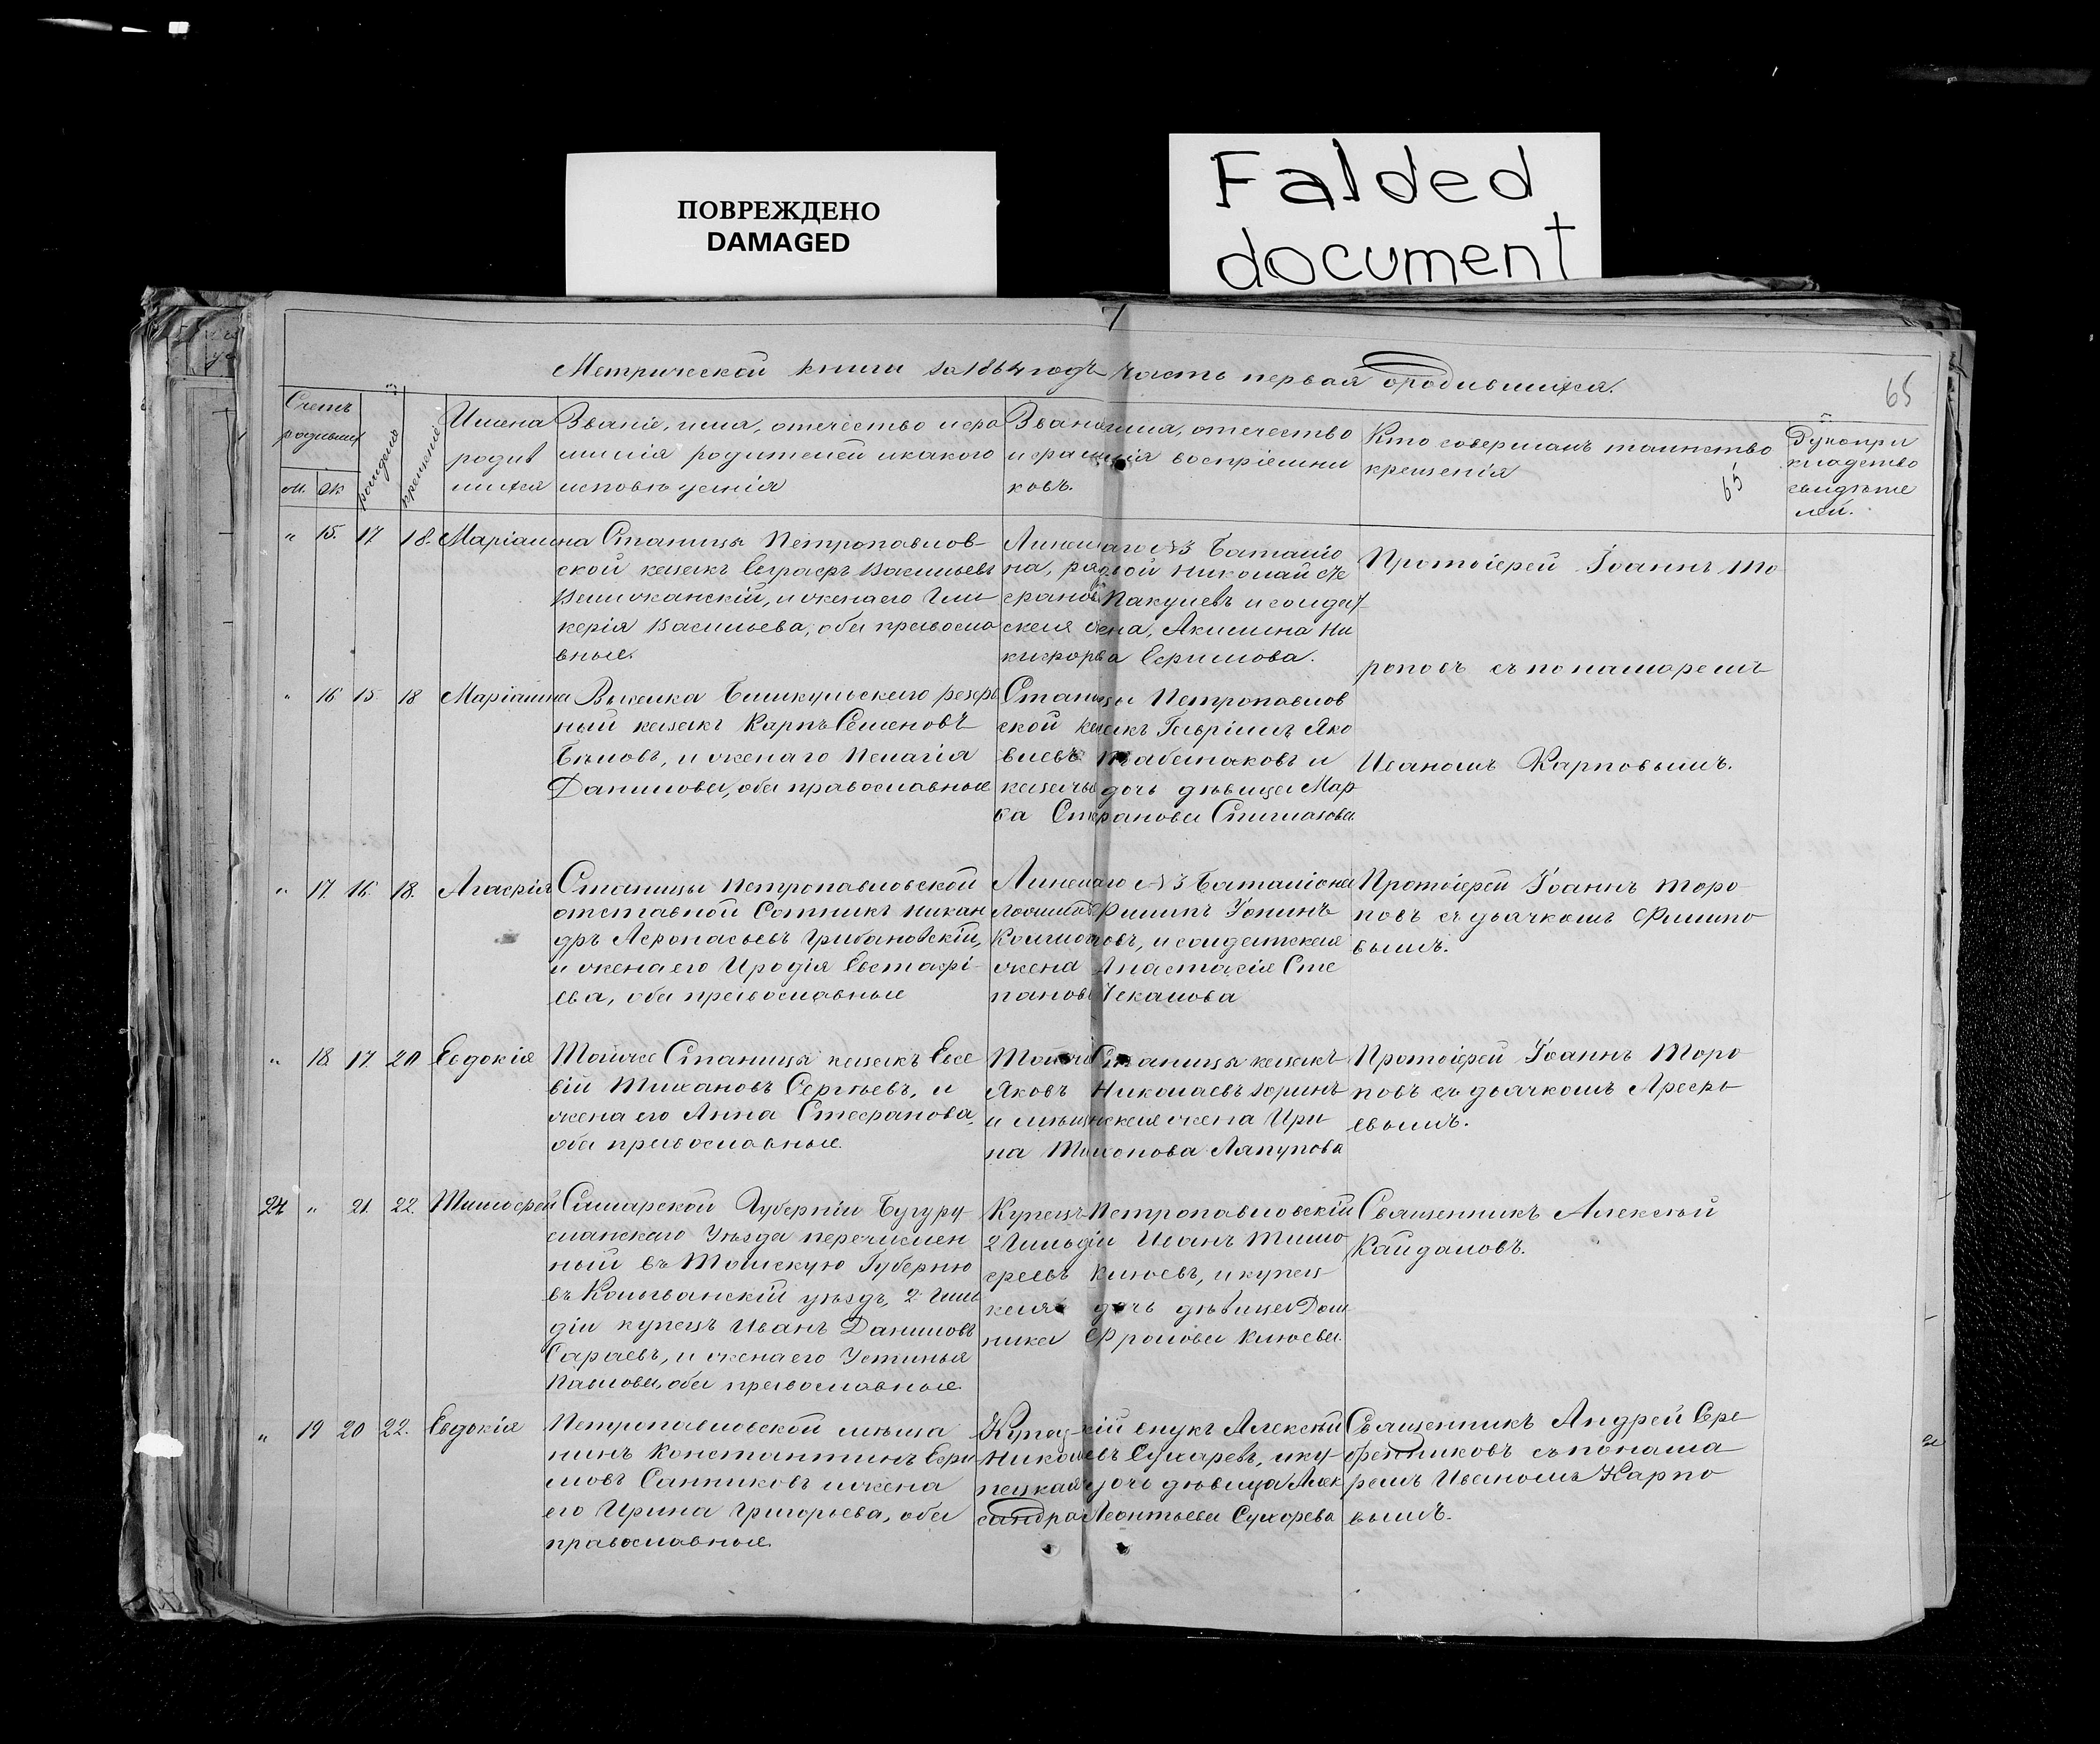 ПОВРЕЖДЕНО
DAMAGED
Falded
document
Метрической книги за 1864 годъ часть первая о родившихся.
65
Счетъ
родивших
м. ж
рожденія
крещенія
Имена
родив
шихся
Званіе, имя, отчество и фа
милія родителей и какого
исповѣданія
Званіе имя, отчество
и фамилія воспріемни
ковъ.
Кто совершалъ таинство
крещенія
65
Рукопри
кладство
свидѣте
лей.
" 15. 17 18. Маріамна
Станицы Петропавлов-
ской казакъ Евграфъ Васильевъ
и жена его Гли-
керія Васильева, оба правосла
вные.
Линейнаго №3 Баталіо
на, рядовой Николай Сте
фановъ Пакулевъ и солдат-
ская жена, Акилина Ни
кифорова Ефимова.
Протоіерей Іоаннъ То
роповъ съ пономаремъ
Иваномъ Карповымъ.
" 16 15. 18 Маріамна
Выселка Бишкульскаго резерв
ный казакъ Карпъ Семеновъ
Бѣловъ, и жена го Пелагія
Данилова, оба православные
Станицы Петропавлов
ской казакъ Гавріилъ Яко
влевъ и
казачья дочь дѣвица Мар
ѳа Стефанова
" 17. 16. 18. Агафія
Станицы Петропавловской
отставной Сотникъ Никан
дръ Афонасьевъ Грибановскій,
и жена его Иродія Евстафі-
ева, оба православные
Линейнаго №3 Баталіона
Филипъ Іонинъ
и солдатская
жена Анастасія Сте
панова Чекалова
Протоіерей Іоаннъ Торо
повъ съ дьячкомъ Филипо
вымъ.
" 18. 17. 20 Евдокія
Тойже Станицы казакъ Евсе
вій Тихановъ Сергѣевъ, и
жена его Анна Стефанова,
оба православные.
Тойже Станицы казакъ
Яковъ Николаевъ Зоринъ
и мѣщанская жена Ири
на Тихонова Ляпунова
Протоіерей Іоаннъ Торо
повъ съ дьячкомъ Арефь
евымъ.
24 " 21. 22. Тимофей
Самарской Губерніи Бугуру
сланскаго Уѣзда перечислен
ный въ Томскую Губерню
въ Колыванскій уѣздъ, 2 Гиль
діи купецъ Иванъ Даниловъ
Сараевъ, и жена его Устинья
Павлова, оба православные.
Купецъ Петропавловскій
2 Гильдіи Иванъ Тимо
феевъ Клюевъ, и купец
кая дочь дѣвица Дом
ника Фролова Клюева.
Священникъ Алексѣй
Кайдаловъ.
" 19 20 22. Евдокія
Петропавловской мѣща
нинъ Константинъ Ефи
мовъ Санниковъ и жена
его Ирина Григорьева, оба
православные.
Купецкій внукъ Алексѣй
Николаевъ Сухаревъ, и ку-
пецкая дочь дѣвица Алек
сандра Леонтьева Сухорева
Священникъ Андрей Сере
бренниковъ съ понома
ремъ Иваномъ Карпо
вымъ.